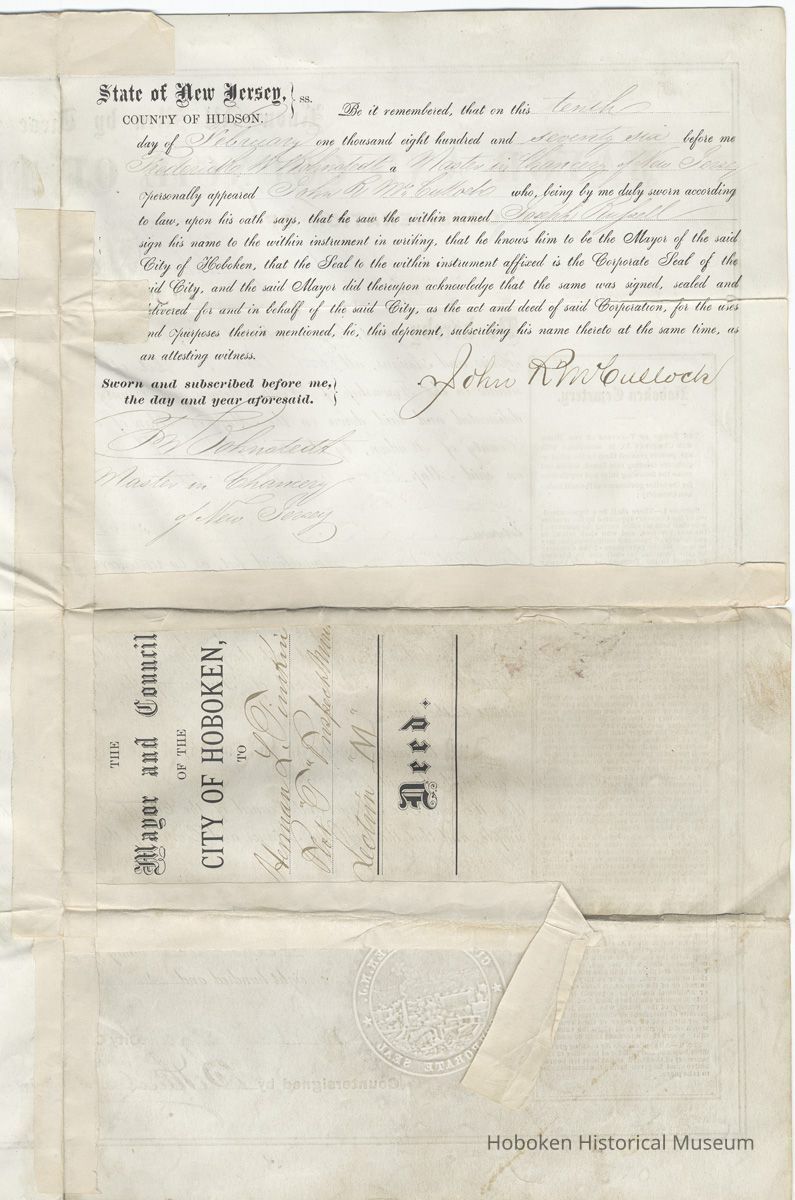 State of New Jersey, } ss.
COUNTY OF HUDSON.
Be it remembered, that on this tenth
day of February one thousand eight hundred and seventy six before me
Frederick W Bohnstedt a Master in Chancery of New Jersey
personally appeared John R McCulloch who, being by me duly sworn according
to law, upon his oath says, that he saw the within named Joseph Russell
sign his name to the within instrument in writing, that he knows him to be the Mayor of the said
City of Hoboken, that the Seal to the within instrument affixed is the Corporate Seal of the
said City, and the said Mayor did thereupon acknowledge that the same was signed, sealed and
delivered for and in behalf of the said City, as the act and deed of said Corporation, for the uses
and purposes therein mentioned, he, this deponent, subscribing his name thereto at the same time, as
an attesting witness.
John R McCulloch
Sworn and subscribed before me, }
the day and year aforesaid.
F W Bohnstedt
Master in Chancery
of New Jersey
THE
Mayor and Council
OF THE
CITY OF HOBOKEN,
TO
Herman L.
Plot
Section "M"
Deed.
Hoboken Cemetery.
Countersigned by
Hoboken Historical Museum